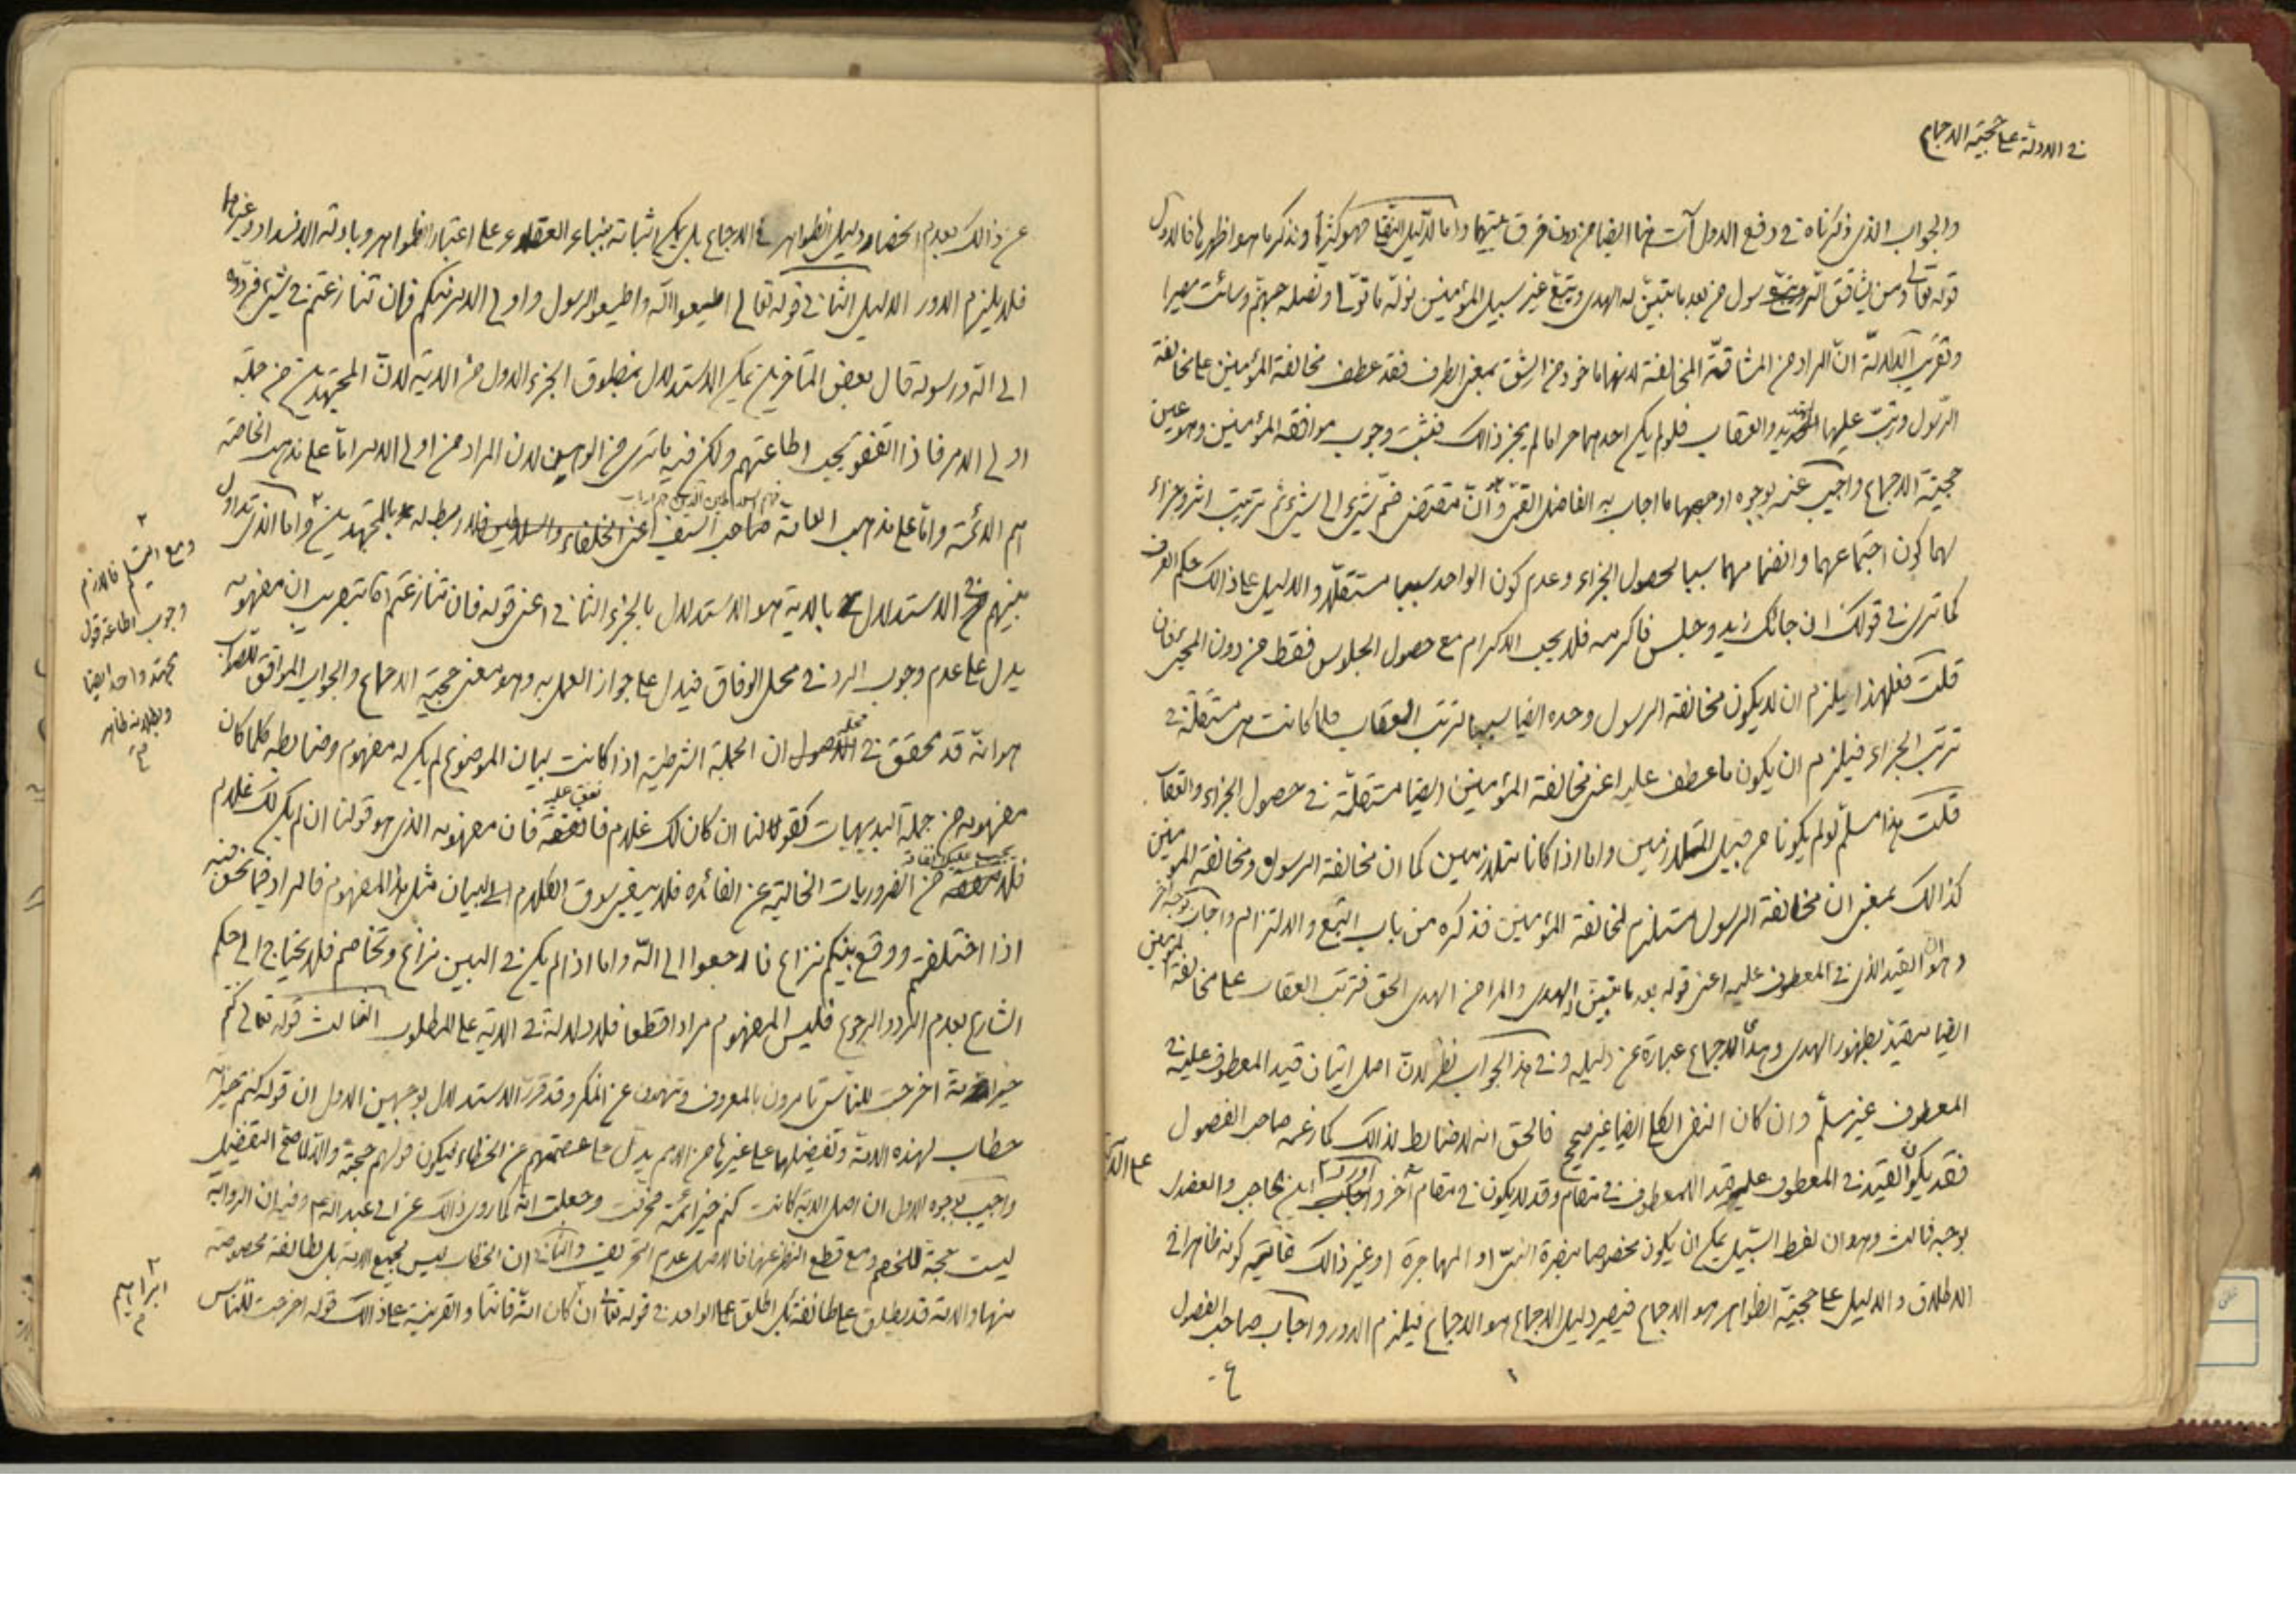 في الادلة على حجية الاجماع
والجواب الذي ذكرناه في دفع الاول آت هنا ايضا من دون فرق بينهما واما الدليل النقلي فهو كثيرة ونذكر ما هو اظهرها فالاول
قوله تعالى ومن يشاقق الرسول من بعد ما تبين له الهدى ويتبع غير سبيل المؤمنين نوله ما تولى ونصله جهنم وسائت مصيرا
وتقريب الدلالة ان المراد من المشاقة المخالفة لانها ماخوذ من الشق بمعنى الطرف فقد عطف مخالفة المؤمنين على مخالفة
الرسول ورتب عليها التهديد والعقاب فلو لم يكن احدهما حراما لم يجز ذالك فثبت وجوب موافقة المؤمنين وهو عين
حجية الاجماع واجيب عنه بوجوه اوجهها ما اجاب به الفاضل القمي وهو ان مقتضى ضم شيء الى شيء ثم ترتيب اثر وجزاء
لهما كون اجتماعهما وانضمامهما سببا لحصول الجزاء وعدم كون الواحد سببا مستقلا والدليل على ذالك حكم العرف
كما ترى في قولك ان جائك زيد وجلس فاكرمه فلا يجب الاكرام مع حصول الجلوس فقط من دون المجيء فان
قلت فعلى هذا يلزم ان لا يكون مخالفة الرسول وحده ايضا سببا لترتب العقاب فلما كانت هي مستقلة في
ترتب الجزاء فيلزم ان يكون ما عطف عليه اعني مخالفة المؤمنين ايضا مستقلة في حصول الجزاء والعقاب
قلت هذا مسلم لو لم يكونا من قبيل المتلازمين واما اذا كانا متلازمين كما ان مخالفة الرسول ومخالفة المؤمنين
كذالك بمعنى ان مخالفة الرسول مستلزم لمخالفة المؤمنين فذكره من باب التبع والالتزام واجاب بوجه آخر
وهو ان القيد الذي في المعطوف عليه اعني قوله بعد ما تبين له الهدى والمراد من الهدى الحق فترتب العقاب على مخالفة المؤمنين
ايضا مقيد بظهور الهدى وهذا الاجماع عبارة عن دليله وفي هذا الجواب نظر لان اصل اتيان قيد المعطوف عليه في
المعطوف غير مسلم وان كان النفي الكلي ايضا غير صحيح فالحق انه لا ضابط لذالك كما زعمه صاحب الفصول
فقد يكون القيد في المعطوف عليه قيد للمعطوف في مقام وقد لا يكون في مقام آخر واورد ابن الحاجب والعضدي على الآية
بوجه ثالث وهو ان لفظ السبيل يمكن ان يكون مخصوصا بنصرة النبي او المهاجرة او غير ذالك غايته كونه ظاهرا في
الاطلاق والدليل على حجية الظواهر هو الاجماع فيصير دليل الاجماع هو الاجماع فيلزم الدور واجاب صاحب الفصول
عن ذالك بعدم انحصار دليل الظواهر في الاجماع بل يمكن اثباته ببناء العقلاء على اعتبار الظواهر وبادلة الانسداد وغيرها
فلا يلزم الدور الدليل الثاني قوله تعالى اطيعوا الله واطيعوا الرسول واولي الامر منكم فان تنازعتم في شيء فردوه
الى الله ورسوله قال بعض المتاخرين يمكن الاستدلال بمنطوق الجزء الاول من الآية لان المجتهدين من جملة
اولي الامر فاذا اتفقوا يجب اطاعتهم ولكن فيه ما ترى من الوهن لان المراد من اولي الامر اما على مذهب الخاصة
هم الائمة واما على مذهب العامة صاحب السيف اعني الخلفاء والسلاطين فلا ربط له بالمجتهدين واما الذي تداول
بينهم في الاستدلال بالاية هو الاستدلال بالجزء الثاني اعني قوله فان تنازعتم آه بتقريب ان مفهومه
يدل على عدم وجوب الرد في محل الوفاق فيدل على جواز العمل به وهو معنى حجية الاجماع والجواب الموافق للصواب
هو انه قد تحقق في محله ان الجملة الشرطية اذا كانت لبيان الموضوع لم يكن له مفهوم وضابطه كلما كان
مفهومه من جملة البديهيات كقولنا ان كان لك غلام فانفق عليه فان مفهومه الذي هو قولنا ان لم يكن لك غلام
فلا يجب عليك انفاقه من الضروريات الخالية عن الفائده فلا يبقى سوق الكلام الى البيان مثل هذا المفهوم فالمراد فيما نحن فيه
اذا اختلفتم ووقع بينكم نزاع فارجعوا الى الله واما اذا لم يكن في البين نزاع وتخاصم فلا يحتاج الى حكم
الشارع بعدم الرد والرجوع فليس المفهوم مرادا قطعا فلا دلالة في الاية على المطلوب الثالث قوله تعالى كنتم
خير امة اخرجت للناس تامرون بالمعروف وتنهون عن المنكر وقد قرر الاستدلال بوجهين الاول ان قوله كنتم خير امة
خطاب لهذه الامة وتفضيلها على غيرها من الامم يدل على عصمتهم عن الخطاء فيكون قولهم حجة والا لما صح التفضيل
واجيب بوجوه الاول ان اصل الاية كانت كنتم خير ائمة فحرفت وجعلت امة كما روى ذالك عن ابي عبد الله ع وفيه ان الرواية
ليست بحجة للخصم ومع قطع النظر عنها فالاصل عدم التحريف والثاني ان الخطاب ليس بجميع الامة بل لطائفة مخصوصة
منها والامة قد يطلق على طائفة بل اطلق على الواحد في قوله تعالى ان كان امة قانتا والقرينة على ذالك قوله اخرجت للناس
ومع التسليم فاللازم
وجوب اطاعة قول
مجتهد واحد ايضا
وبطلانه ظاهر
ابراهيم